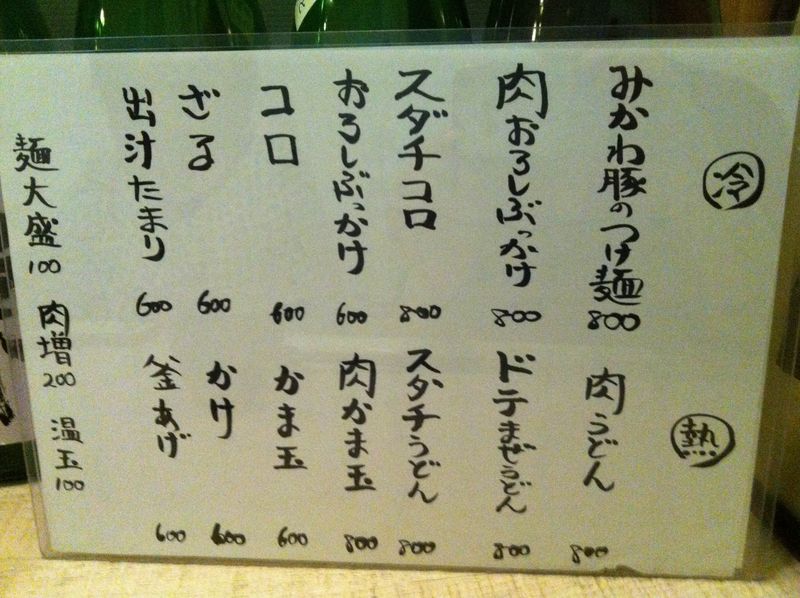 冷
みかわ豚のつけ麺 800
肉おろしぶっかけ 800
スダチコロ 800
おろしぶっかけ 600
コロ 600
ざる 600
出汁たまり 600
熱
肉うどん 800
ドテまぜうどん 800
スダチうどん 800
肉かま玉 800
かま玉 600
かけ 600
釜あげ 600
麺大盛 100
肉増 200
温玉 100